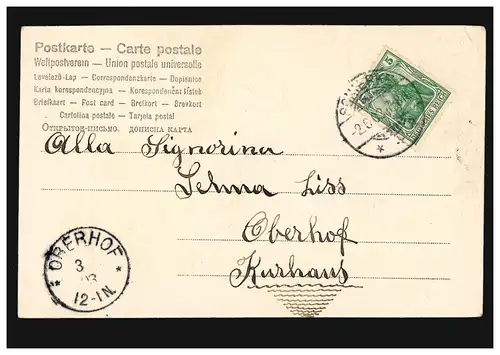 Postkarte – Carte postale
Weltpostverein – Union postale universelle
Levelező-Lap – Correspondenzkarte – Dopisnice
Karta korespondencyjna – Korespondenční lístek
Briefkaart – Post card – Brefkort – Brevkort
Cartolina postale – Tarjeta postal
Открытое письмо. дописна карта
Alla Signorina
Selma Liss
Oberhof
Kurhaus
* OBERHOF *
3
03
12-1N.
5